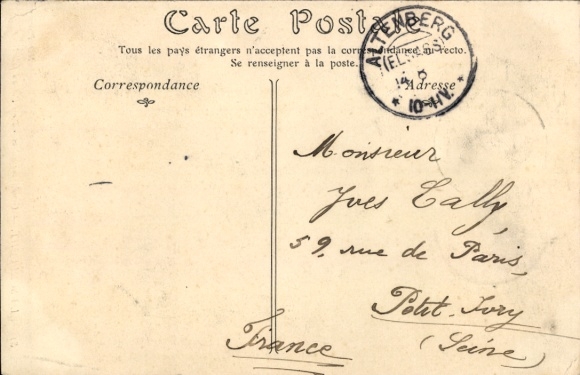 Carte Postale
Tous les pays étrangers n'acceptent pas la correspondance au recto.
Se renseigner à la poste.
Correspondance
Adresse
ALTENBERG
(ELSASS)
14 5
* 10-11V. *
Monsieur
Yves Cally,
59, rue de Paris,
Petit-Ivry
(Seine)
France